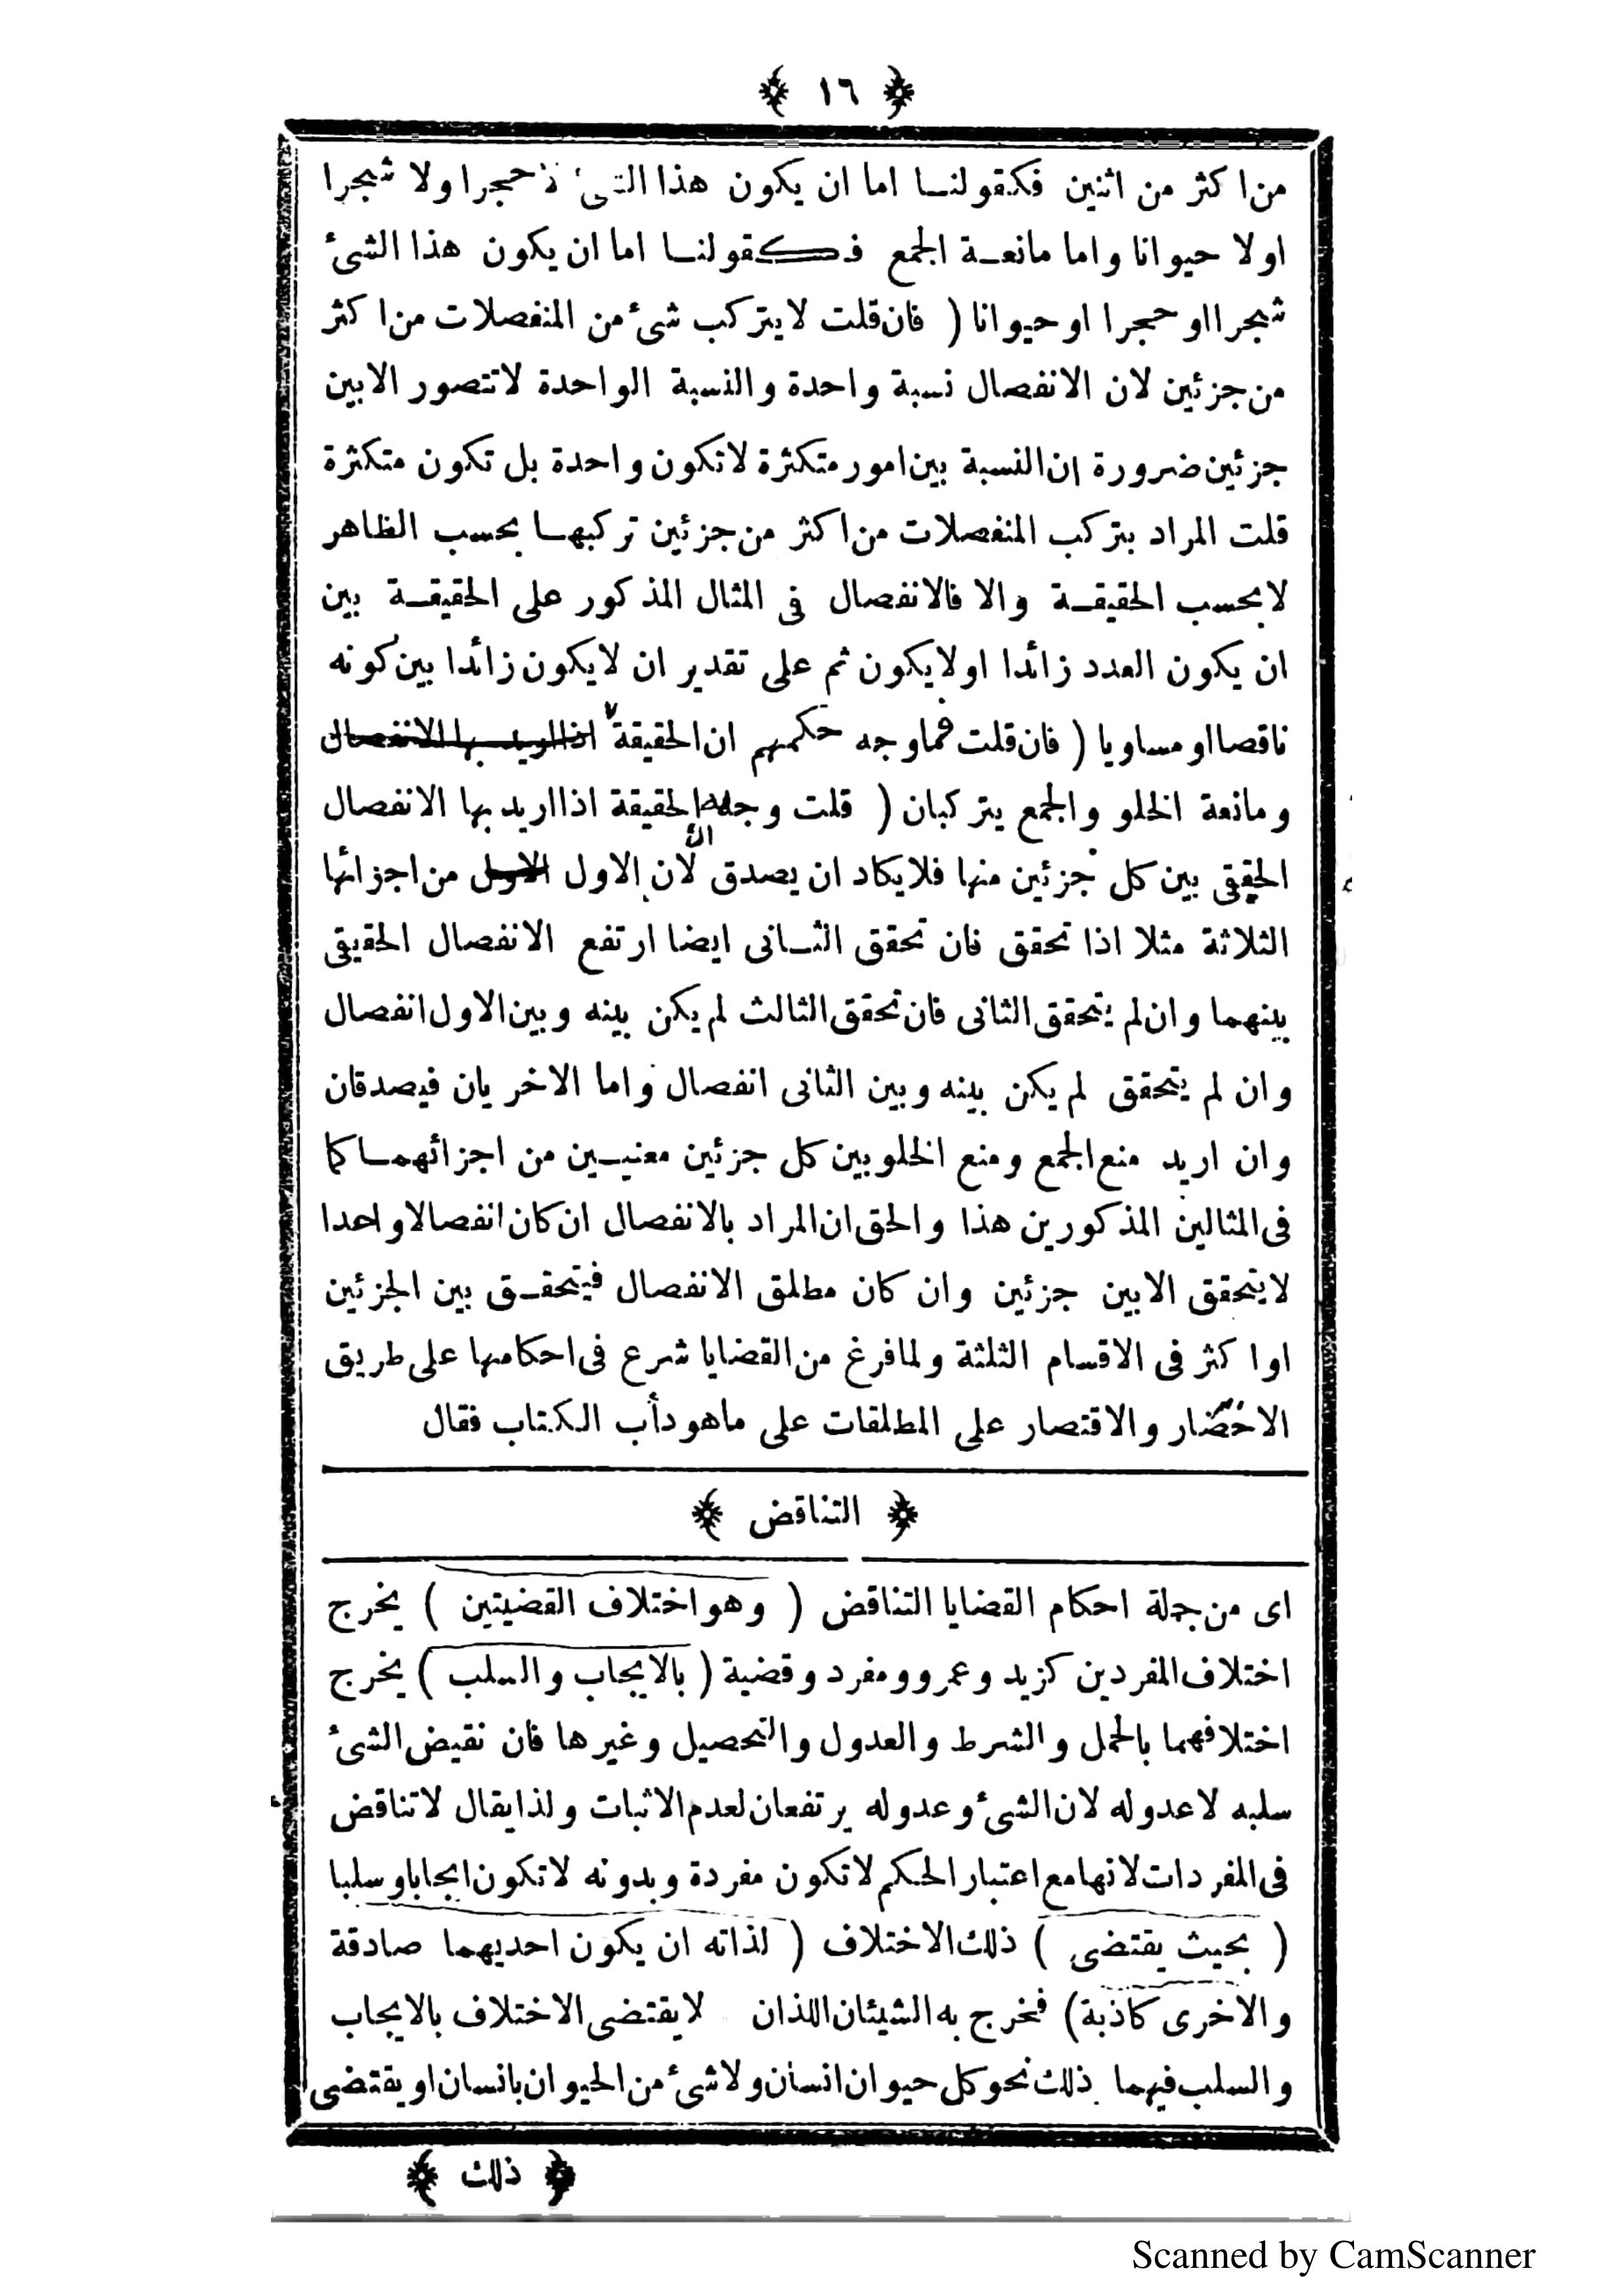 ﴿ ١٦ ﴾
من اكثر من اثنين فكقولنا اما ان يكون هذا الشئ لا حجرا ولا شجرا
اولا حيوانا واما مانعة الجمع فكقولنا اما ان يكون هذا الشئ
شجرا او حجرا او حيوانا ( فان قلت لا يتركب شئ من المنفصلات من اكثر
من جزئين لان الانفصال نسبة واحدة والنسبة الواحدة لا تتصور الا بين
جزئين ضرورة ان النسبة بين امور متكثرة لا تكون واحدة بل تكون متكثرة
قلت المراد بتركب المنفصلات من اكثر من جزئين تركبها بحسب الظاهر
لا بحسب الحقيقة والا فالانفصال فى المثال المذكور على الحقيقة بين
ان يكون العدد زائدا اولا يكون ثم على تقدير ان لا يكون زائدا بين كونه
ناقصا او مساويا ( فان قلت فما وجه حكمهم ان الحقيقة اذا اريد بها الانفصال
ومانعة الخلو والجمع يتركبان ( قلت وجهه الحقيقة اذا اريد بها الانفصال
الحقيقى بين كل جزئين منها فلا يكاد ان يصدق لان الاول الاول من اجزائها
الثلاثة مثلا اذا تحقق فان تحقق الثانى ايضا ارتفع الانفصال الحقيقى
بينهما وان لم يتحقق الثانى فان تحقق الثالث لم يكن بينه وبين الاول انفصال
وان لم يتحقق لم يكن بينه وبين الثانى انفصال واما الاخريان فيصدقان
وان اريد منع الجمع ومنع الخلو بين كل جزئين معنيين من اجزائهما كما
فى المثالين المذكورين هذا والحق ان المراد بالانفصال ان كان انفصالا واحدا
لا يتحقق الا بين جزئين وان كان مطلق الانفصال فيتحقق بين الجزئين
او اكثر فى الاقسام الثلثة ولما فرغ من القضايا شرع فى احكامها على طريق
الاختصار والاقتصار على المطلقات على ما هو دأب الكتاب فقال
﴿ التناقض ﴾
اى من جملة احكام القضايا التناقض ( وهو اختلاف القضيتين ) يخرج
اختلاف المفردين كزيد وعمرو ومفرد وقضية ( بالايجاب والسلب ) يخرج
اختلافهما بالحمل والشرط والعدول والتحصيل وغيرها فان نقيض الشئ
سلبه لا عدوله لان الشئ وعدوله يرتفعان لعدم الاثبات ولذا يقال لا تناقض
فى المفردات لانها مع اعتبار الحكم لا تكون مفردة وبدونه لا تكون ايجابا وسلبا
( بحيث يقتضى ) ذلك الاختلاف ( لذاته ان يكون احديهما صادقة
والاخرى كاذبة) فخرج به الشيئان اللذان لا يقتضى الاختلاف بالايجاب
والسلب فيهما ذلك نحو كل حيوان انسان ولا شئ من الحيوان بانسان او يقتضى
﴿ ذلك ﴾
Scanned by CamScanner